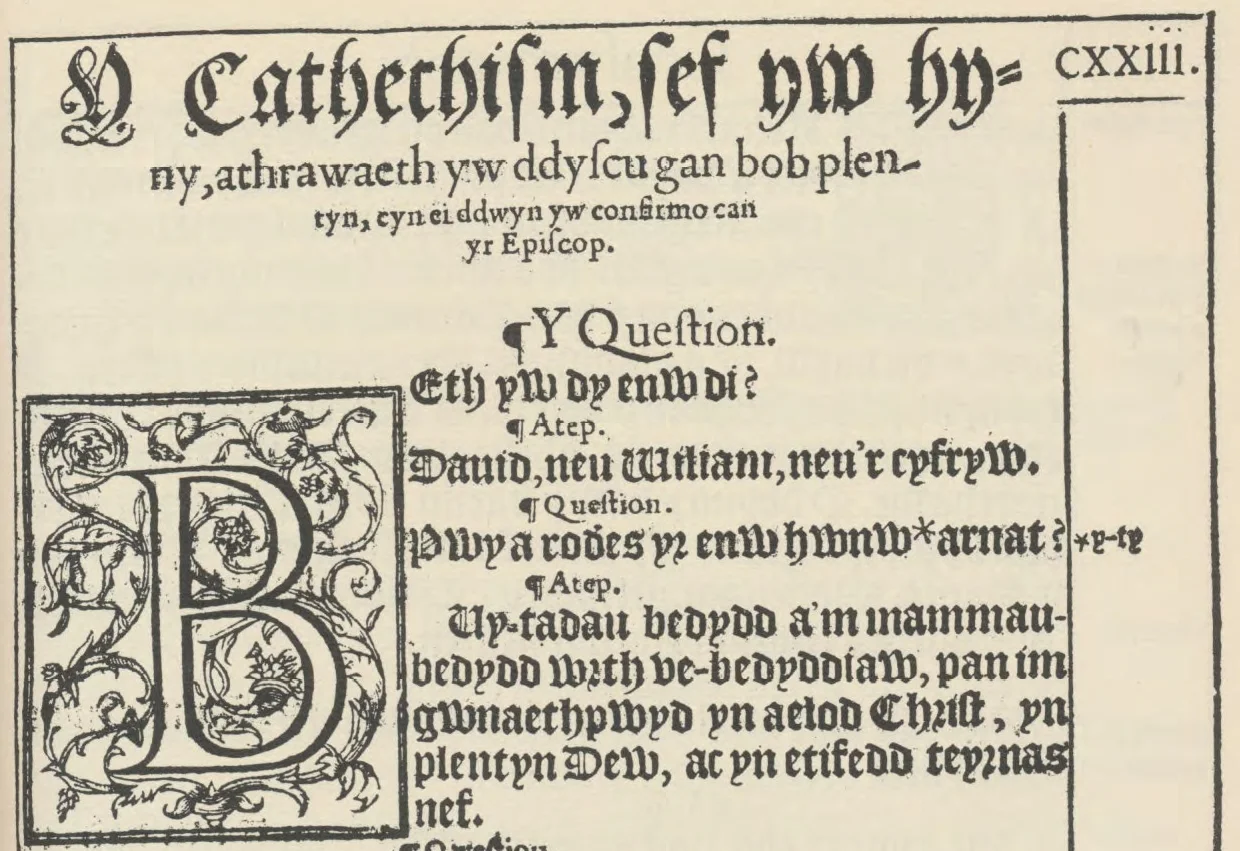 Y Cathechiſm, ſef yw hy-
CXXIII.
ny, athrawaeth yw ddyſcu gan bob plen-
tyn, cyn ei ddwyn yw confirmo can
yr Epiſcop.
¶ Y Queſtion.
BEth yw dy enw di?
¶ Atep.
Dauid, neu Wiliam, neu'r cyfryw.
¶ Queſtion.
Pwy a rodes yr enw hwnw*arnat?
*y-ty
¶ Atep.
Uy-tadau bedydd a'm mammau-
bedydd wrth ve-bedyddiaw, pan im
gwnaethpwyd yn aelod Chriſt, yn
plentyn Dew, ac yn etifedd teyrnas
nef.
¶ Queſtion